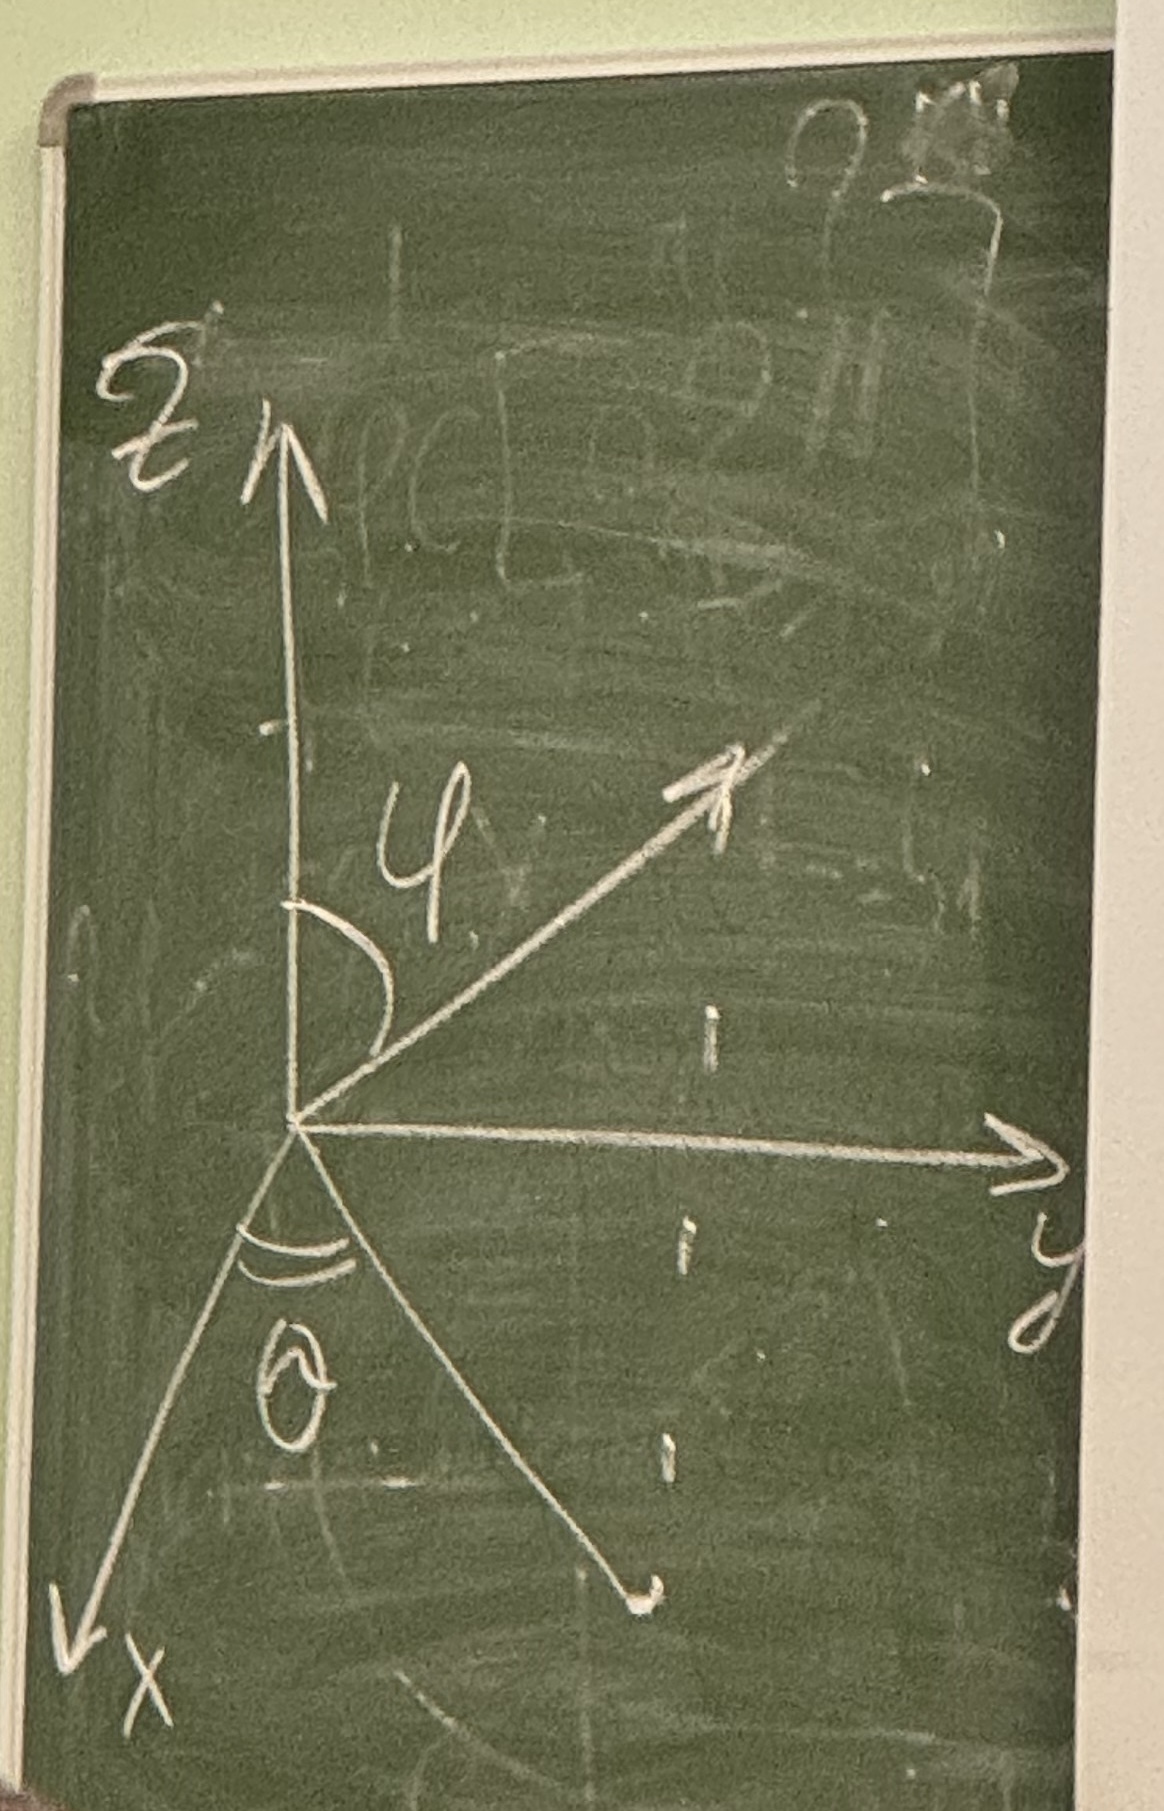 z
φ
y
θ
x